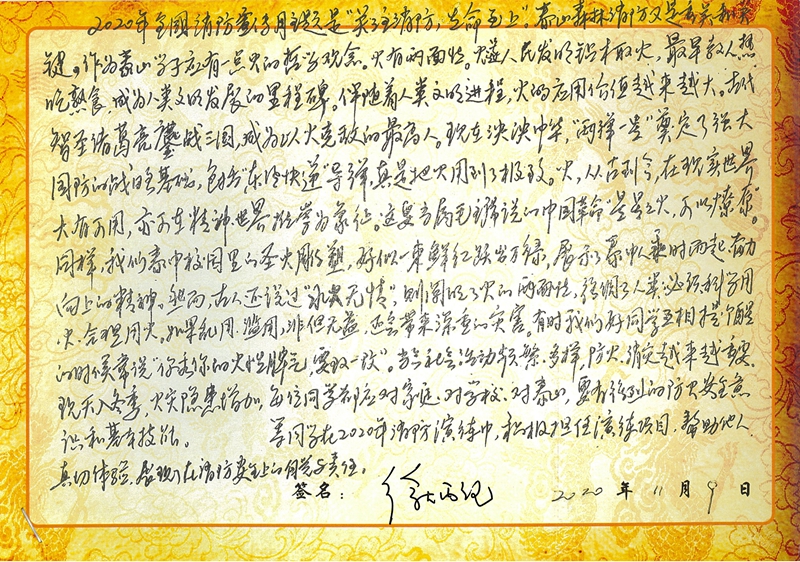 2020年全国消防宣传月主题是“关注消防，生命至上”。泰山森林消防又是重关和关
键。作为泰山学子应有一点火的哲学观念。火有两面性。燧人氏发明钻木取火，最早教人想
吃熟食，成为人类文明发展的里程碑。伴随着人类文明进程，火的应用价值越来越大。古代
智圣诸葛亮鏖战三国，成为以火克敌的最高人。现在泱泱中华，“两弹一星”奠定了强大
国防的战略基础，包括“东风快递”导弹，真是把火用到了极致。火，从古到今，在现实世界
大有可用，亦可在精神世界哲学为象征。这里有毛主席说的中国革命“星星之火，可以燎原”。
同样，我们泰中校园里的圣火雕塑，好似一束鲜红跃出万绿，展示了泰中人乘时而起、奋力
向上的精神。然而，古人还说过“水火无情”，则阐明了火的两面性，强调了人类必须科学用
火、合理用火。如果乱用、滥用，非但无益，还会带来深重的灾害。有时我们好同学互相提个醒
的时候常说“你走你的火性脾气，要收一收”。当今社会活动频繁、多样，防火、消灾越来越重要。
现天入冬季，火灾隐患增加，每位同学都应对家庭、对学校、对泰山，要有强烈的防火安全意
识和基本技能。 等同学在2020年消防演练中，积极担任演练项目，帮助他人
真切体验，展现了在消防安全上的自觉与责任。
签名： 2020 年 11 月 9 日